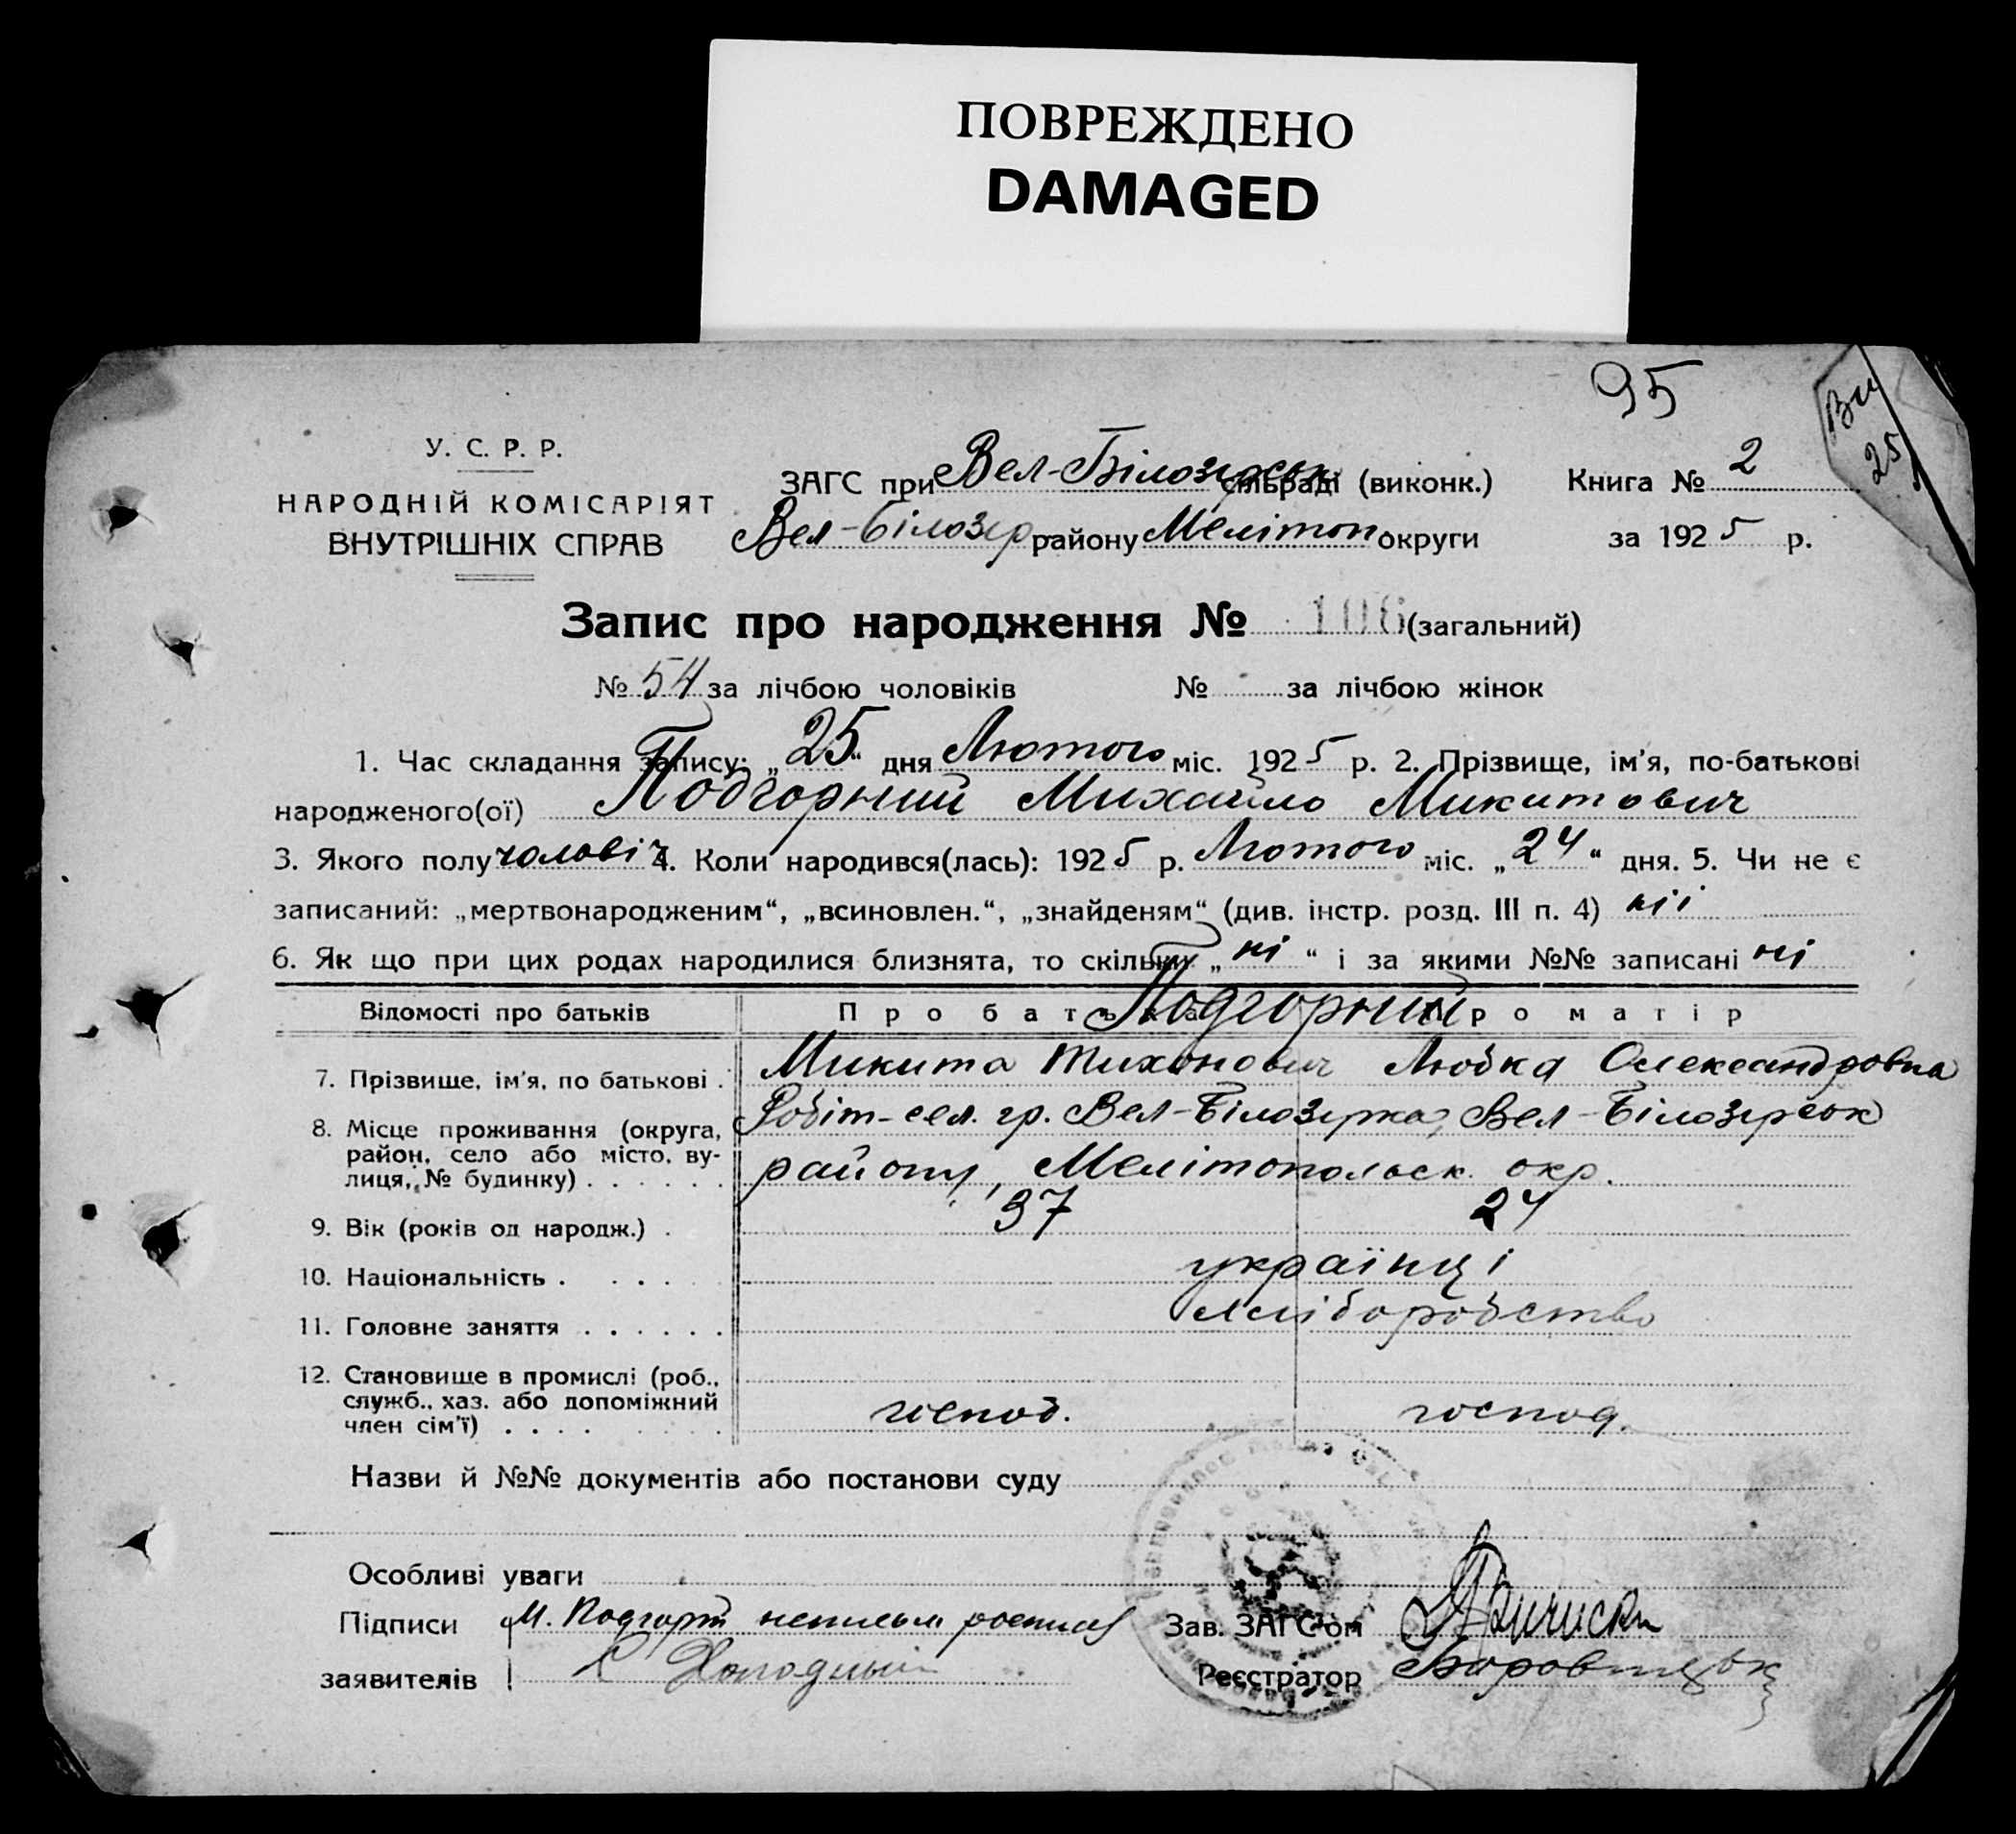 ПОВРЕЖДЕНО
DAMAGED
95
Ви
25
У. С. Р. Р.
НАРОДНІЙ КОМІСАРІЯТ
ВНУТРІШНІХ СПРАВ
ЗАГС при Вел-Білозірськ сільраді (виконк.) Книга № 2
Вел-Білозер району Мелітоп округи за 1925 р.
Запис про народження № 106 (загальний)
№ 54 за лічбою чоловіків № - за лічбою жінок
1. Час складання запису: „25“ дня Лютого міс. 1925 р. 2. Прізвище, ім’я, по-батькові
народженого(ої) Подгорний Михайло Микитович
3. Якого полу чоловіч 4. Коли народився(лась): 1925 р. Лютого міс. „24“ дня. 5. Чи не є
записаний: „мертвонародженим“, „всиновлен.“, „знайденям“ (див. інстр. розд. III п. 4) ні
6. Як що при цих родах народилися близнята, то скільки „ні“ і за якими №№ записані ні
Відомості про батьків Про батька Про матір
Подгорний
7. Прізвище, ім’я, по батькові . Микита Тихонович Любка Олександровна
8. Місце проживання (округа, район, село або місто, вулиця, № будинку) . . . . . . Робіт-сел. гр. Вел-Білозерка, Вел-Білозерськ
району, Мелітопольск. окр.
9. Вік (років од народж.) . 37 24
10. Національність . . . . українці
11. Головне заняття . . . . . . хліборобство
12. Становище в промислі (роб., служб., хаз. або допоміжний член сім’ї) . . . . господ. господ.
Назви й №№ документів або постанови суду
Особливі уваги
Підписи М. Подгорн неписьм росписав Зав. ЗАГС’ом
заявителів Холодний Реєстратор